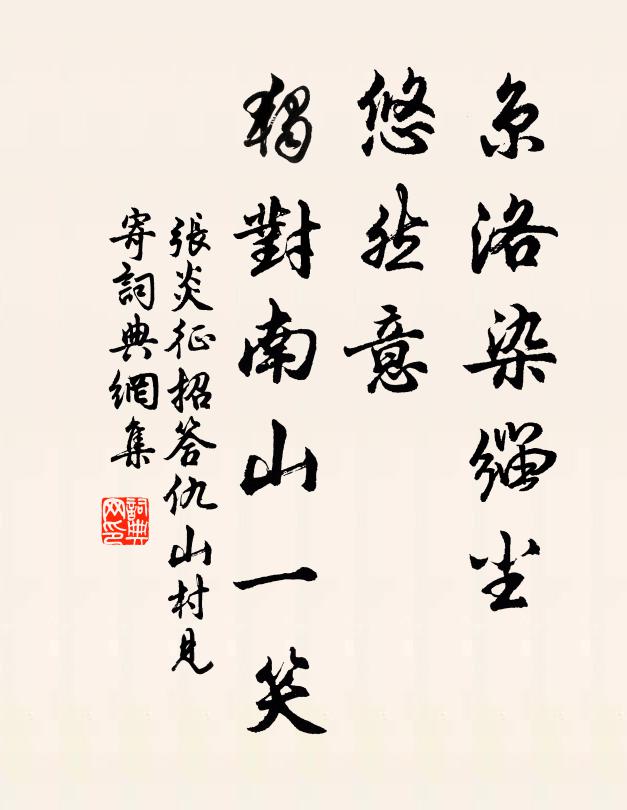 京洛染缁尘
悠然意
獨對南山一笑
張炎征招答仇山村見
寄詞典網集
詞典网印